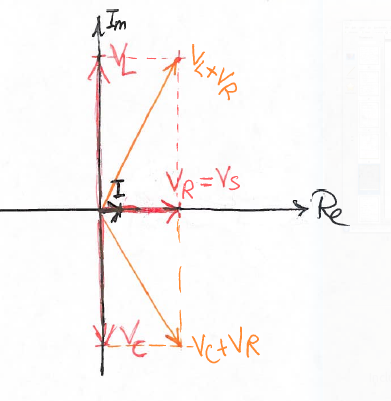 Im
VL
VL+VR
I
VR=VS
Re
VC
VC+VR